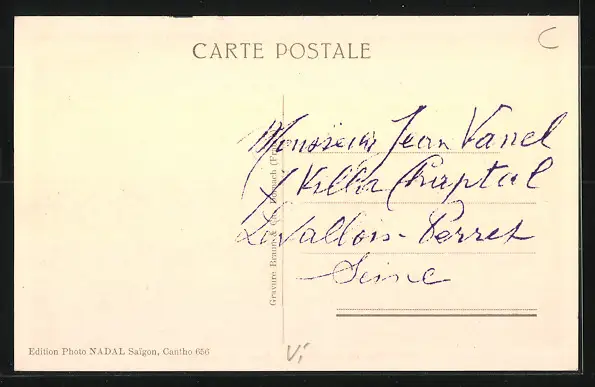 CARTE POSTALE
C
Monsieur Jean Vanel
7 Villa Chaptal
Levallois-Perret
Seine
Gravure Braun & Cie, Dornach (F
Edition Photo NADAL Saïgon, Cantho 656
Vi